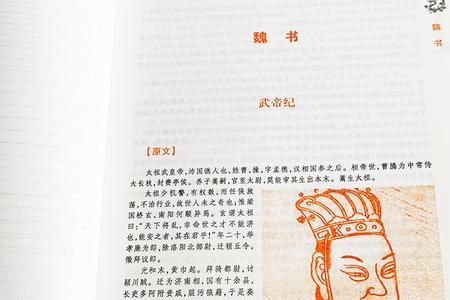 魏书
魏 书
武帝纪
【原文】
太祖武皇帝，沛国谯人也，姓曹，操，字孟德，汉相国参之后。桓帝世，曹腾为中常侍
大长秋，封费亭侯。养子嵩嗣，官至太尉，莫能审其生出本末。嵩生太祖。
太祖少机警，有权数，而任侠放
荡，不治行业，故世人未之奇也；惟梁
国桥玄、南阳何颙异焉。玄谓太祖
曰：“天下将乱，非命世之才不能济
也，能安之者，其在君乎！”年二十，举
孝廉为郎，除洛阳北部尉，迁顿丘令，
徵拜议郎。
光和末，黄巾起。拜骑都尉，讨
颍川贼。迁为济南相，国有十余县，
长吏多阿附贵戚，赃污狼藉，于是奏